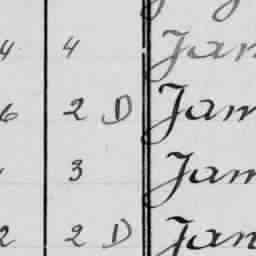 4 4 Jam
6 2 D Jam
3 Jam
2 2 D Jan